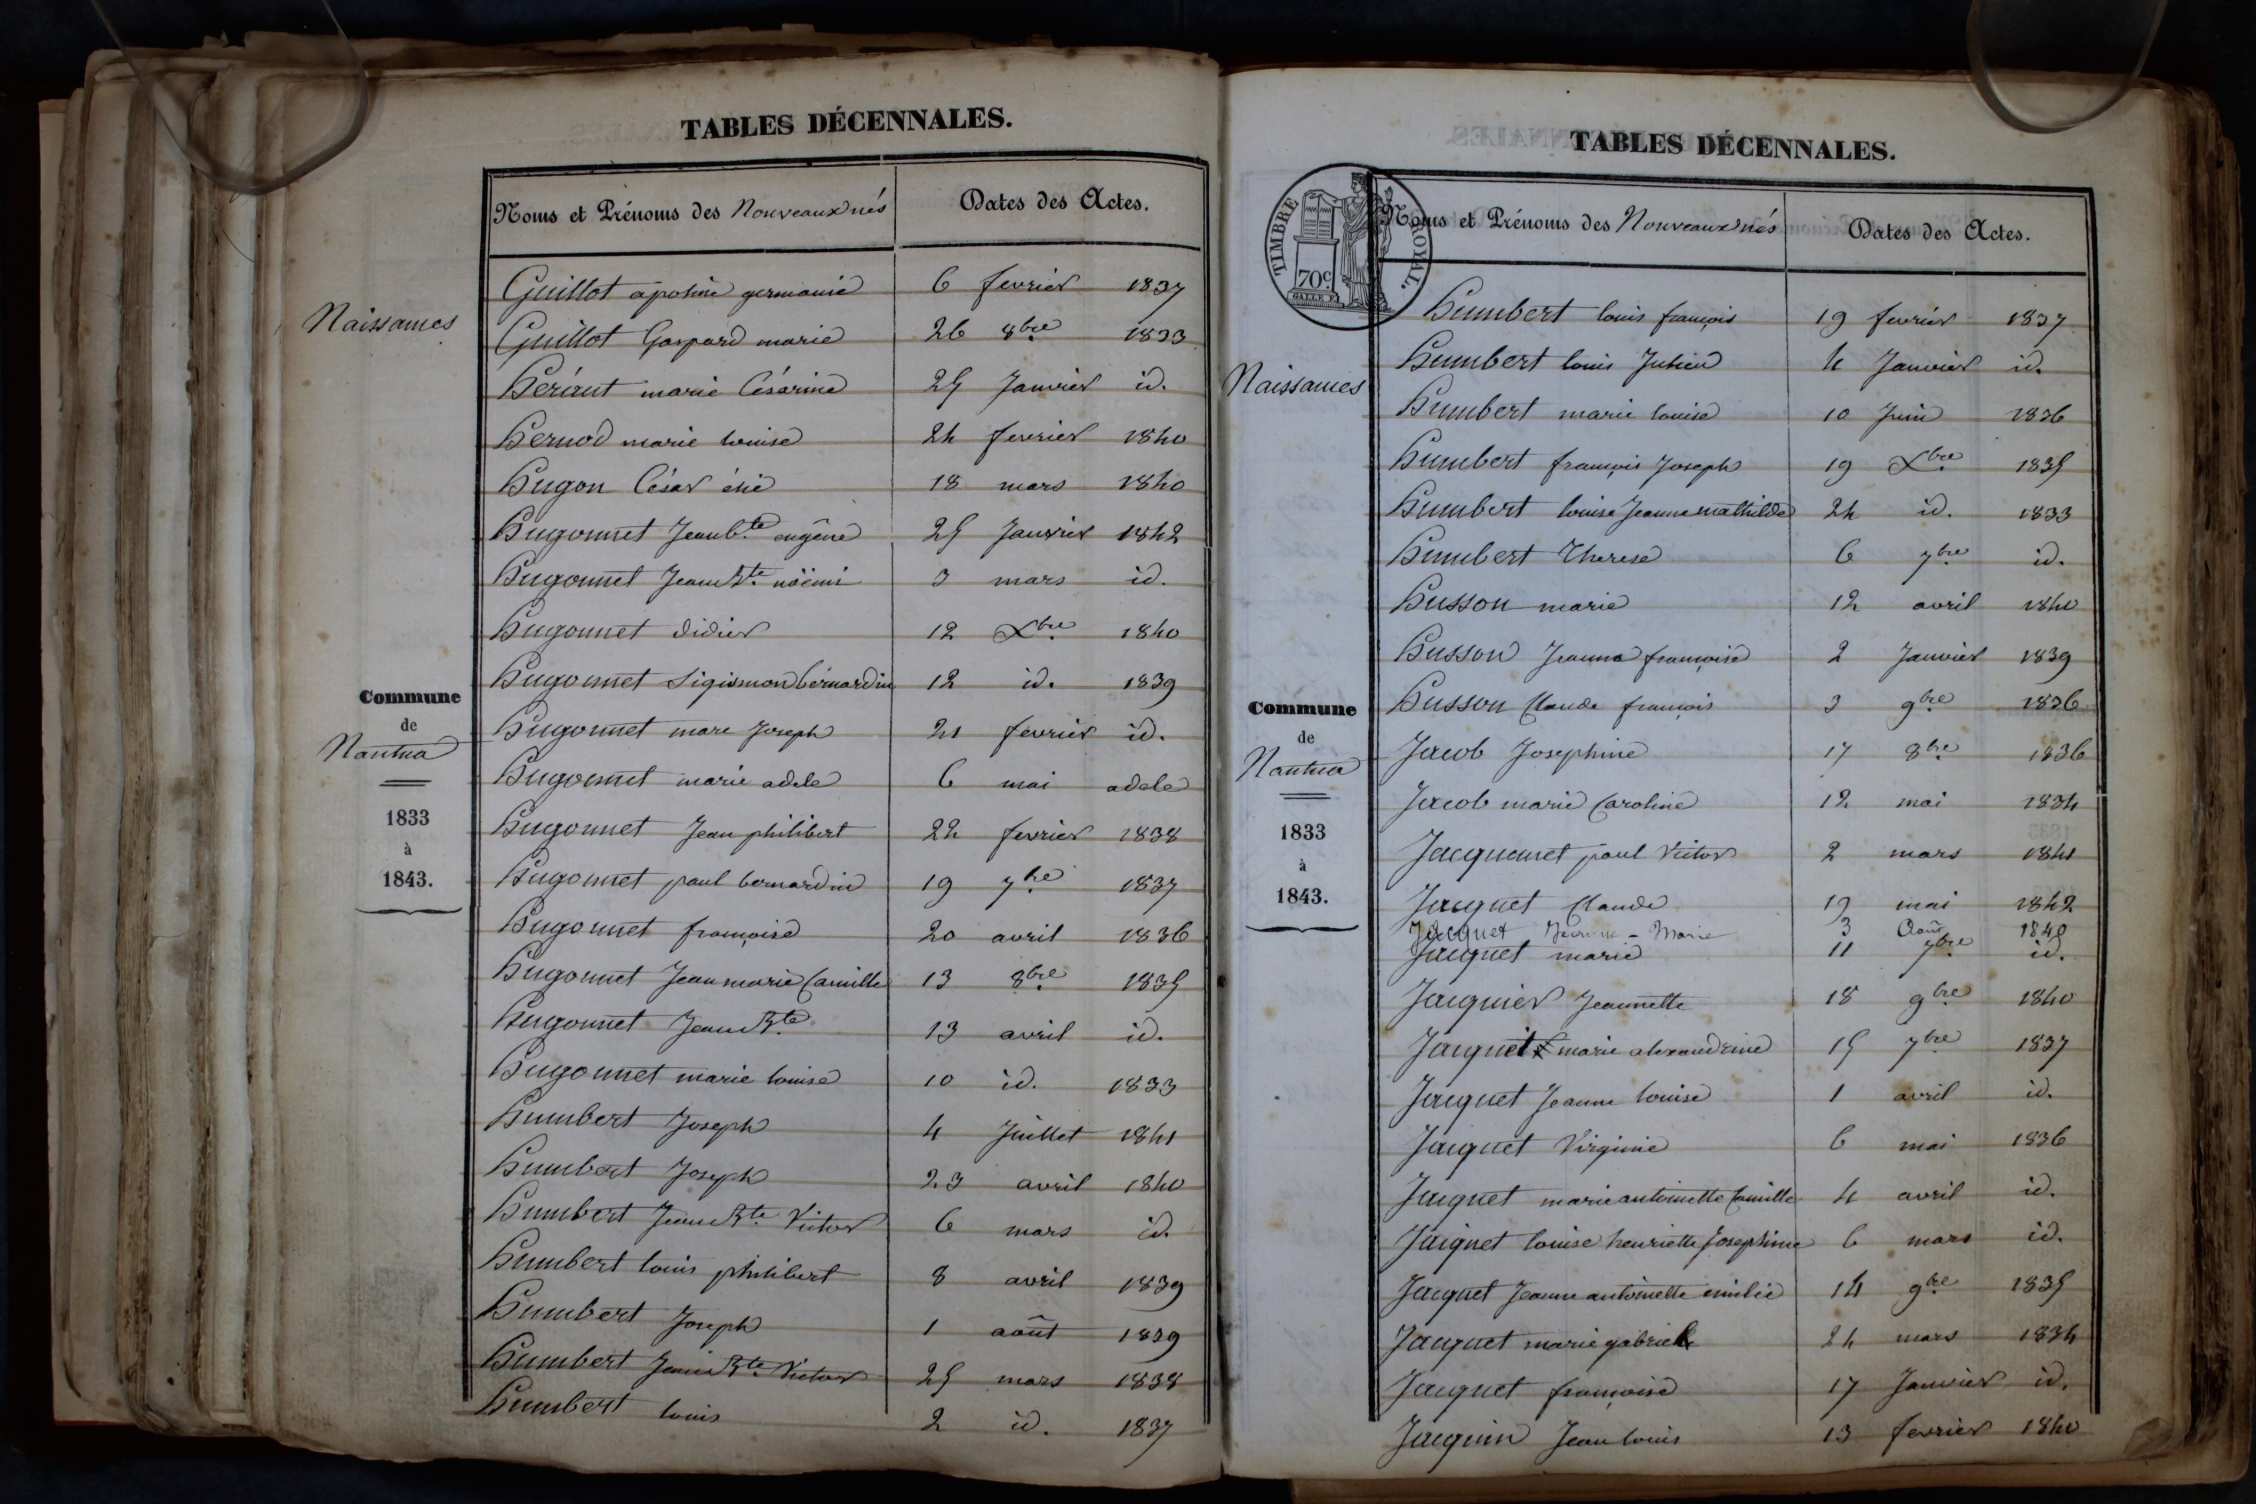 TABLES DÉCENNALES.
Noms et Prénoms des Nouveaux nés Dates des Actes.
Naissances
Guillot apoline germanie 6 fevrier 1837
Guillot Gaspard marie 26 8bre 1833
Heriant marie Césarine 25 Janvier id.
Hernod marie louise 24 fevrier 1840
Hugon César élie 18 mars 1840
Hugonnet Jean bte eugène 25 Janvier 1842
Hugonnet Jean Bte nöëmi 3 mars id.
Hugonnet didier 12 Xbre 1840
Hugonnet Sigismon bernardin 12 id. 1839
Hugonnet marc Joseph 21 fevrier id.
Hugonnet marie adele 6 mai adele
Hugonnet Jean philibert 22 fevrier 1838
Hugonnet paul bernardin 19 7bre 1837
Hugonnet françoise 20 avril 1836
Hugonnet Jean marie Camille 13 8bre 1835
Hugonnet Jean Bte 13 avril id.
Hugonnet marie louise 10 id. 1833
Humbert Joseph 4 Juillet 1841
Humbert Joseph 23 avril 1840
Humbert Jean Bte Victor 6 mars id.
Humbert louis philibert 8 avril 1839
Humbert Joseph 1 août 1839
Humbert Jean Bte Victor 25 mars 1838
Humbert louis 2 id. 1837
Commune
de
Nantua
1833
à
1843.
TABLES DÉCENNALES.
TIMBRE ROYAL.
70c.
Noms et Prénoms des Nouveaux nés Dates des Actes.
Naissances
Humbert louis françois 19 fevrier 1837
Humbert louis Julien 4 Janvier id.
Humbert marie louise 10 Juin 1836
Humbert françois Joseph 19 Xbre 1835
Humbert louise Jeanne mathilde 24 id. 1833
Humbert Therese 6 7bre id.
Husson marie 12 avril 1840
Husson Jeanne françoise 2 Janvier 1839
Husson Claude françois 3 9bre 1836
Jacob Josephine 17 8bre 1836
Jacob marie Caroline 12 mai 1834
Jacquemet paul Victor 2 mars 1841
Jacquet Claude 19 mai 1842
Jacquet Jeanne - Marie 3 Août 1840
Jacquet marie 11 7bre id.
Jacquier Jeannette 18 9bre 1840
Jacquet marie alexandrine 15 7bre 1837
Jacquet Jeanne louise 1 avril id.
Jacquet Virginie 6 mai 1836
Jacquet marie antoinette Camille 4 avril id.
Jacquet louise henriette Josephine 6 mars id.
Jacquet Jeanne antoinette emilie 14 9bre 1835
Jacquet marie gabriel 24 mars 1834
Jacquet françoise 17 Janvier id.
Jacquin Jean louis 13 fevrier 1840
Commune
de
Nantua
1833
à
1843.